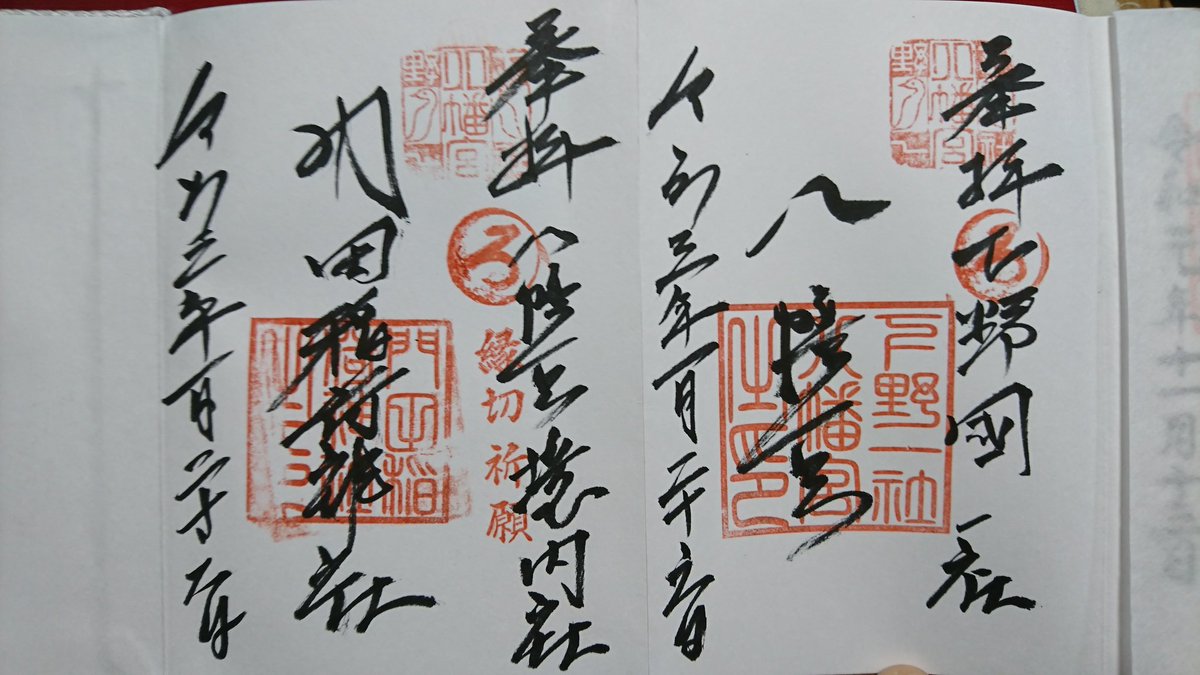 奉拝 下野國一社
八幡宮
下野一社
八幡宮
之印
令和三年一月二十
八幡宮
奉拝 八幡宮境内社
縁切祈願
門田稲荷神社
門田稲
令和三年一月二十
八幡宮